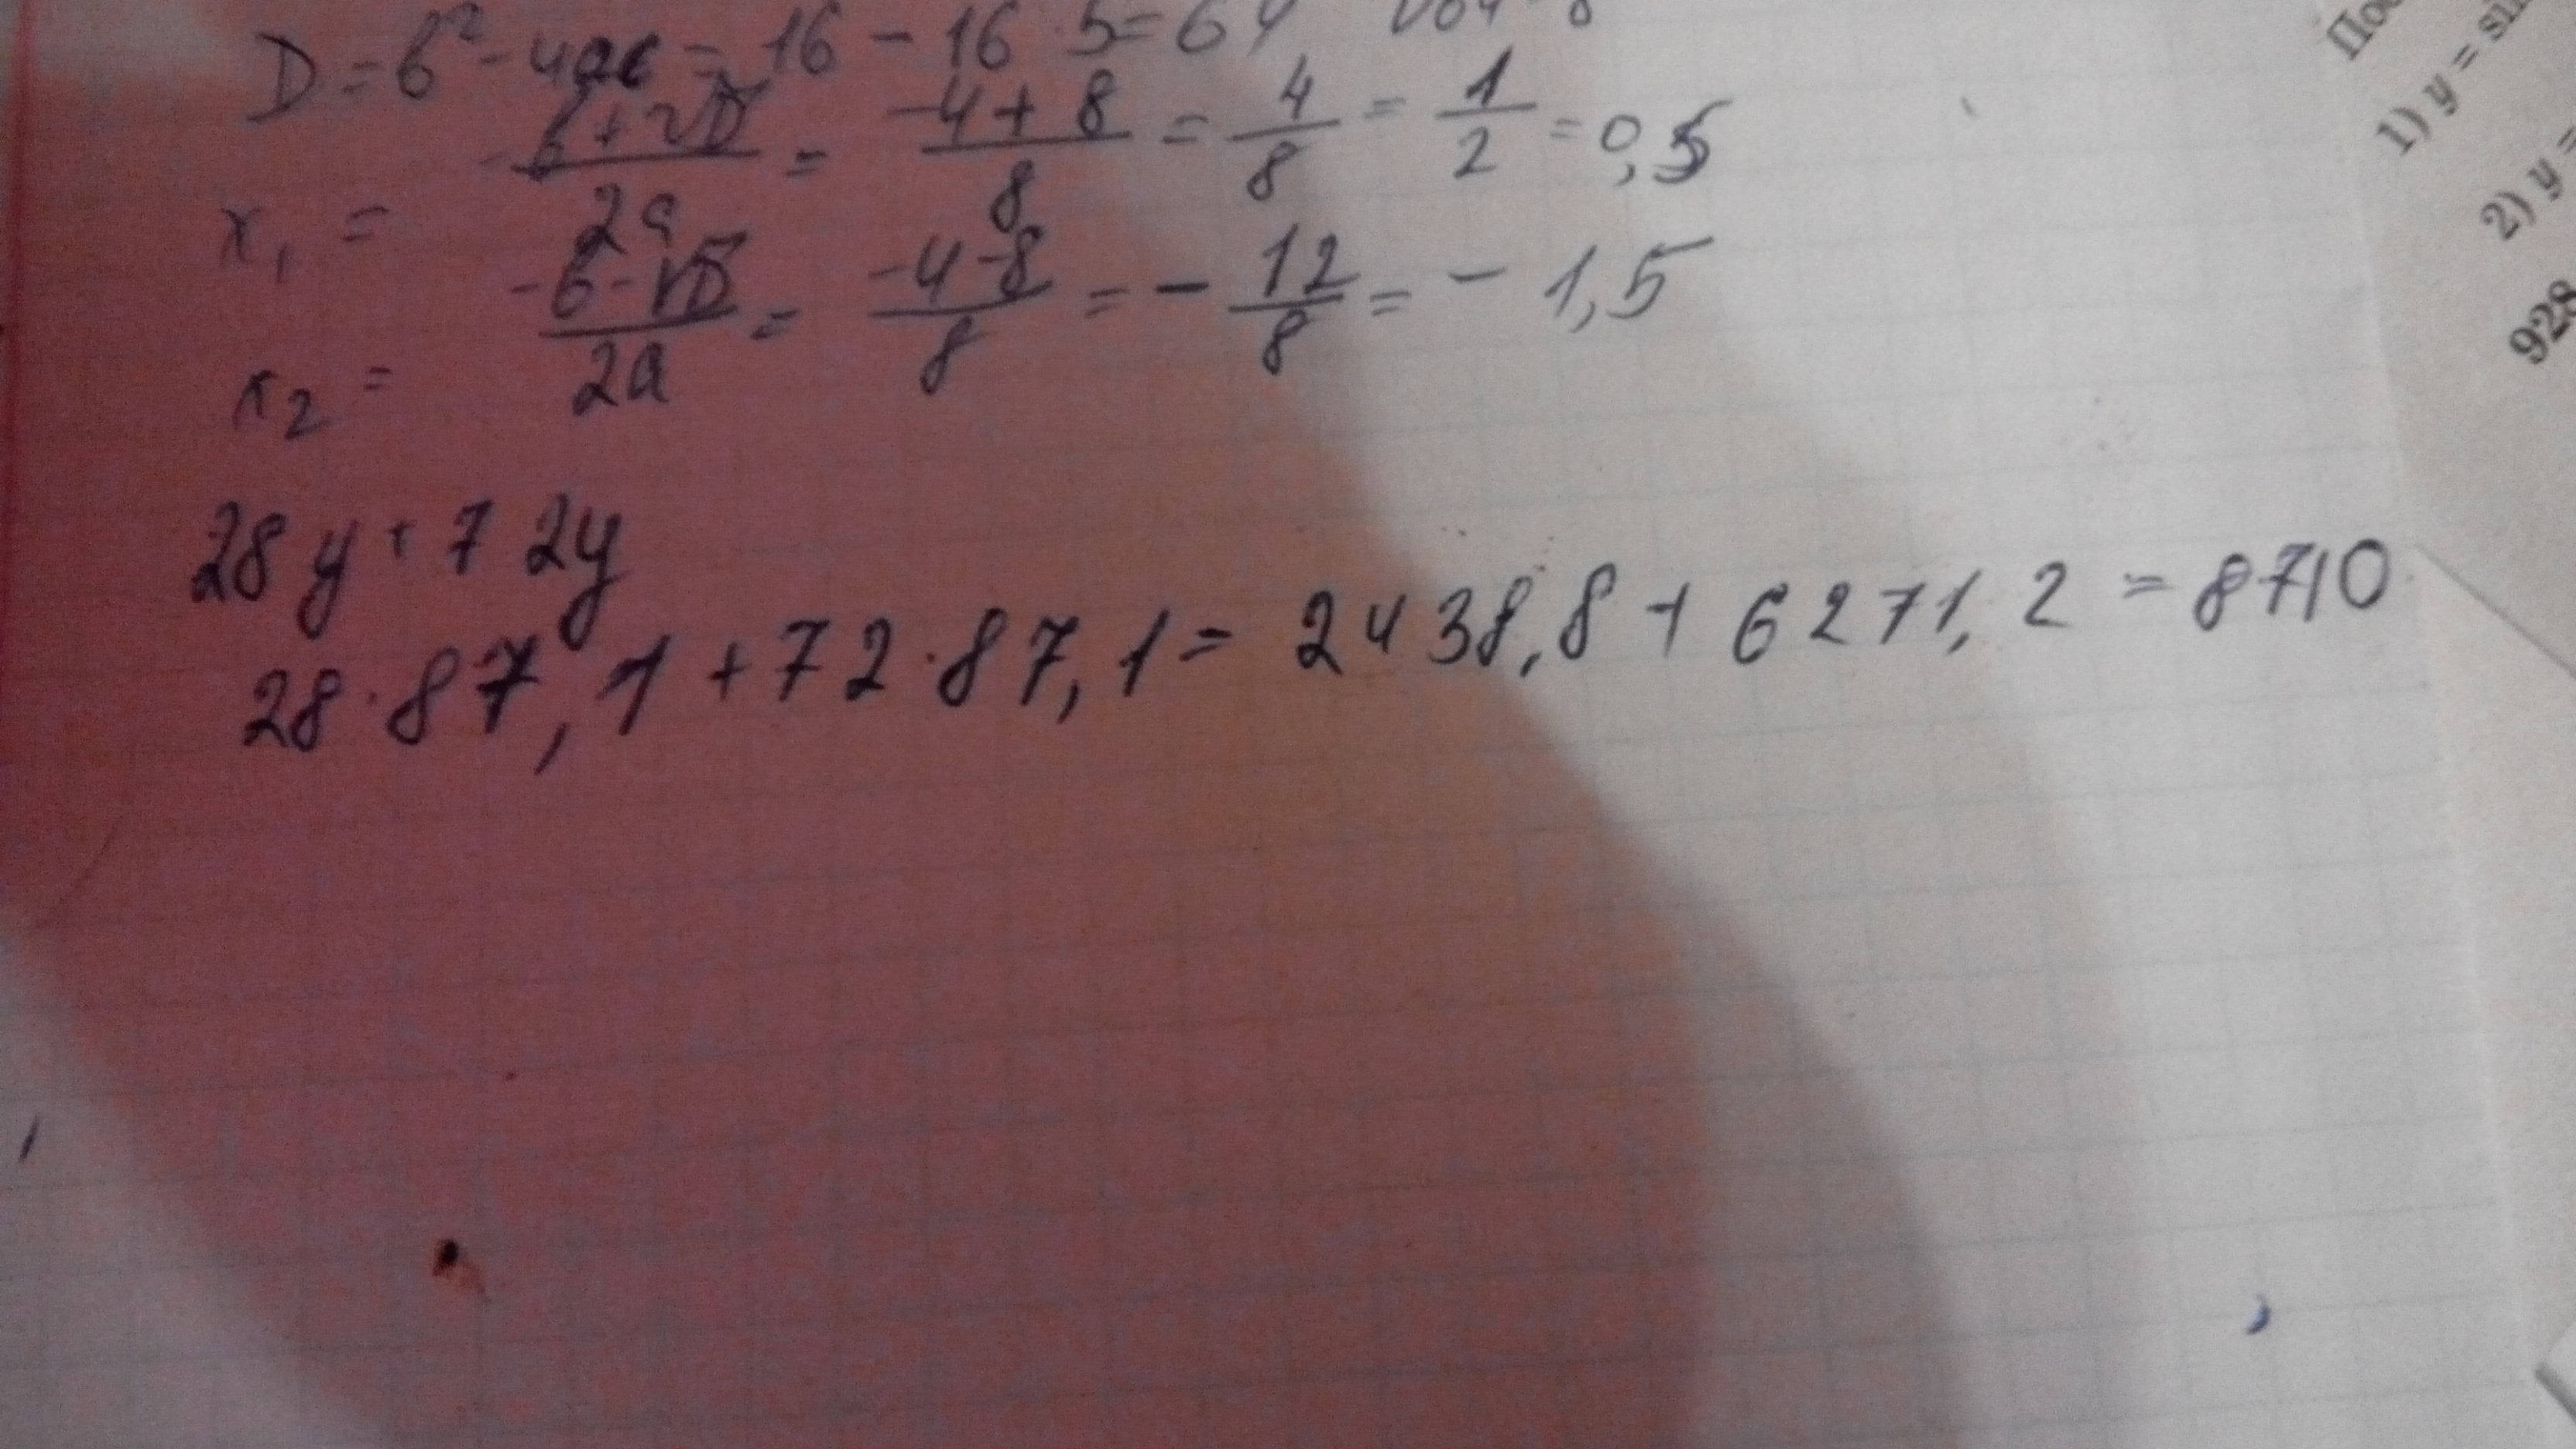 D = b² - 4ac = 16 - 16 · 5 = 64
x₁ = -b+√D/2a = -4+8/8 = 4/8 = 1/2 = 0,5
x₂ = -b-√D/2a = -4-8/8 = - 12/8 = - 1,5
28y + 72y
28 · 87,1 + 72 · 87,1 = 2438,8 + 6271,2 = 8710
1) y =
2) y =
928